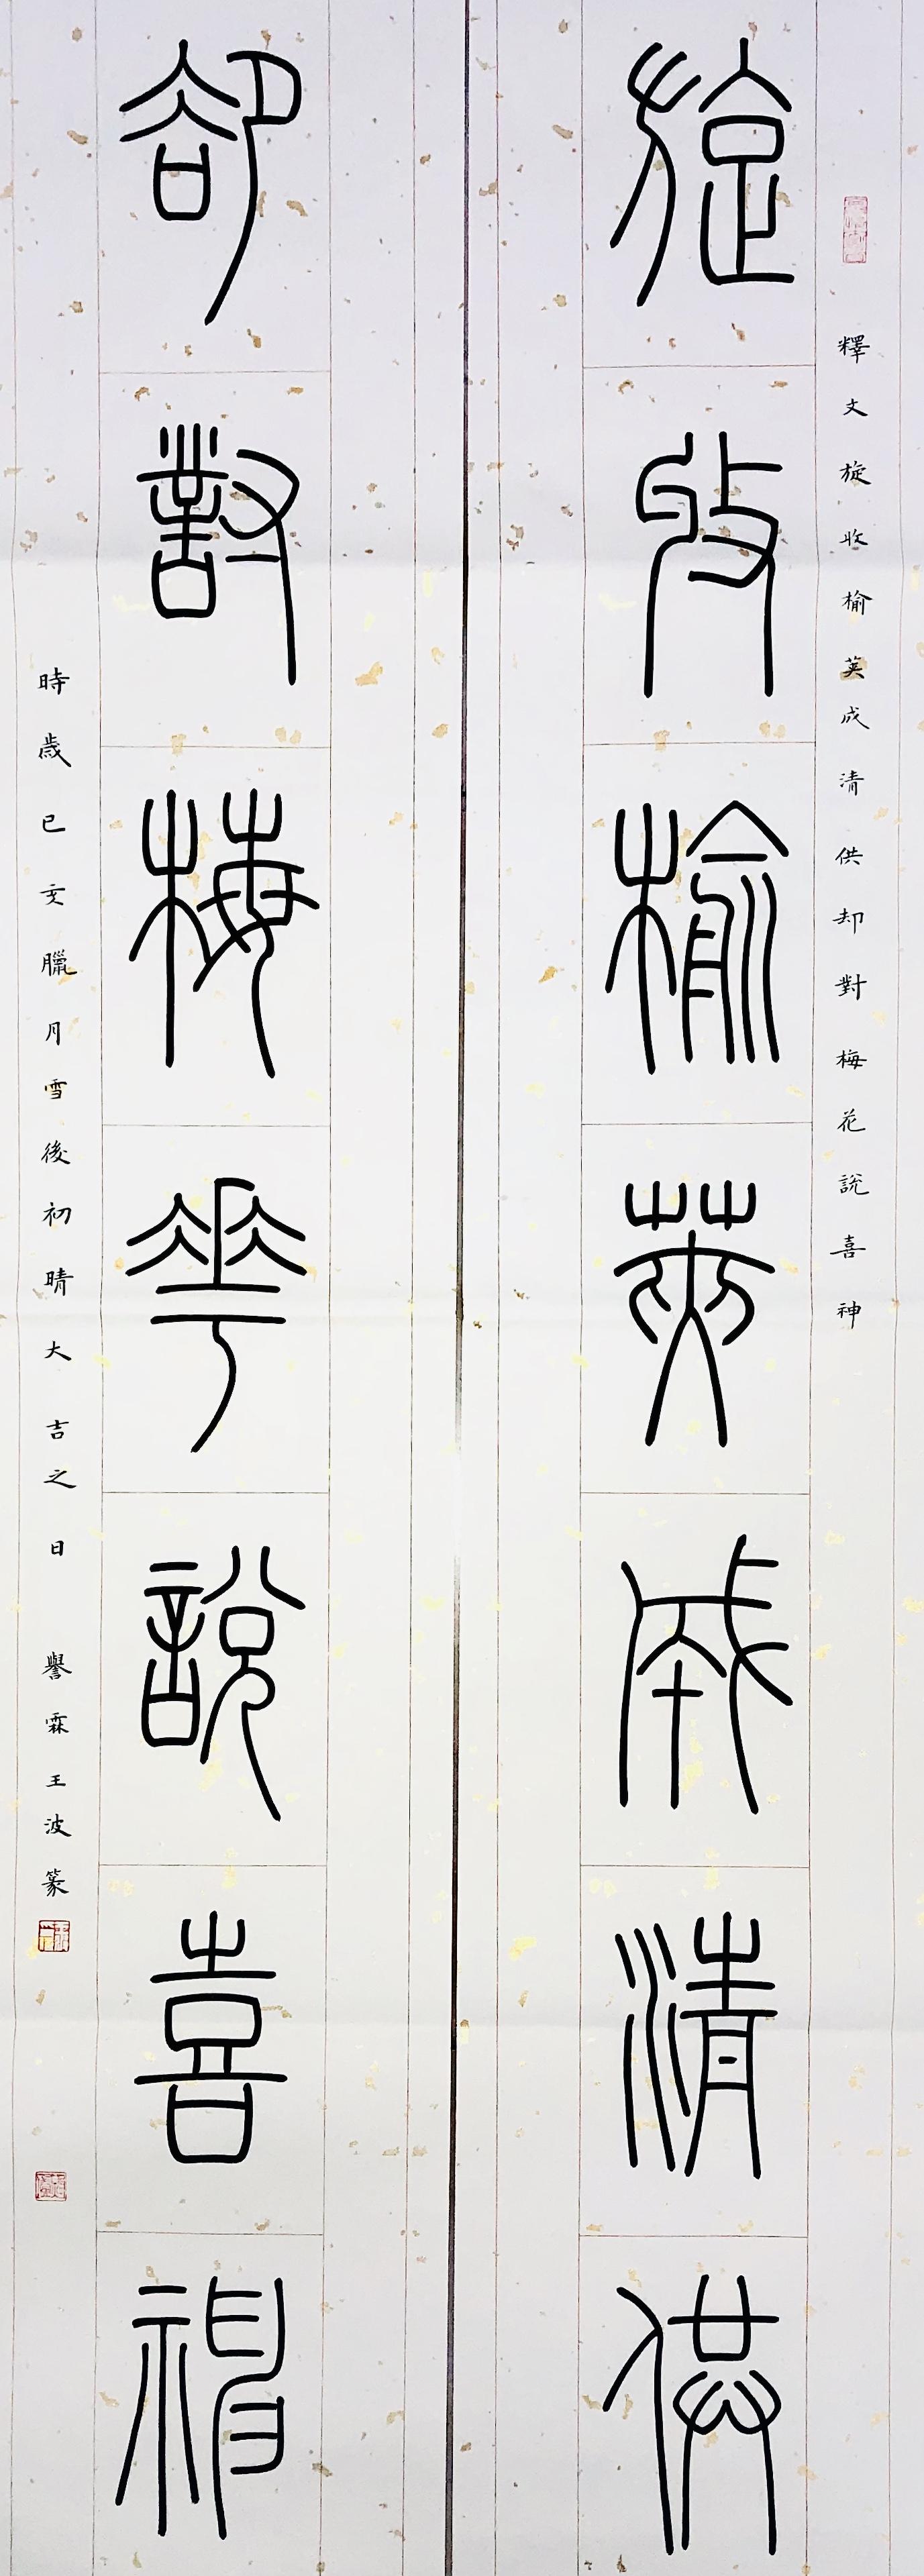 旋收榆莢成清供
釋文旋收榆莢成清供却對梅花說喜神
卻對梅華說喜神
時歲己亥臘月雪後初晴大吉之日 譽霖王波篆